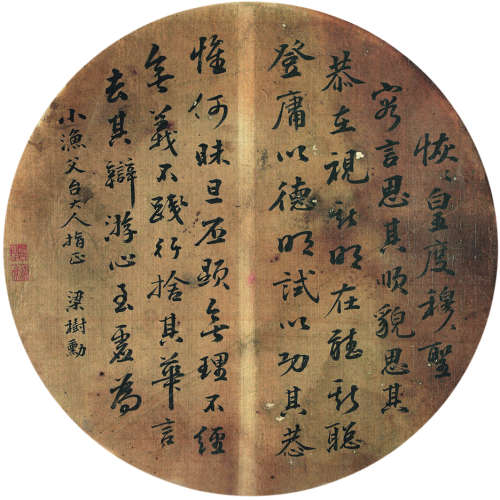 恢〻皇度穆〻聖
容言思其順貌思其
恭在視斯明在聽斯聰
登庸以德明試以功其恭
惟何昧旦丕顯無理不經
無義不踐行捨其華言
去其辯游心至虛為
小漁父台大人指正 梁樹勳